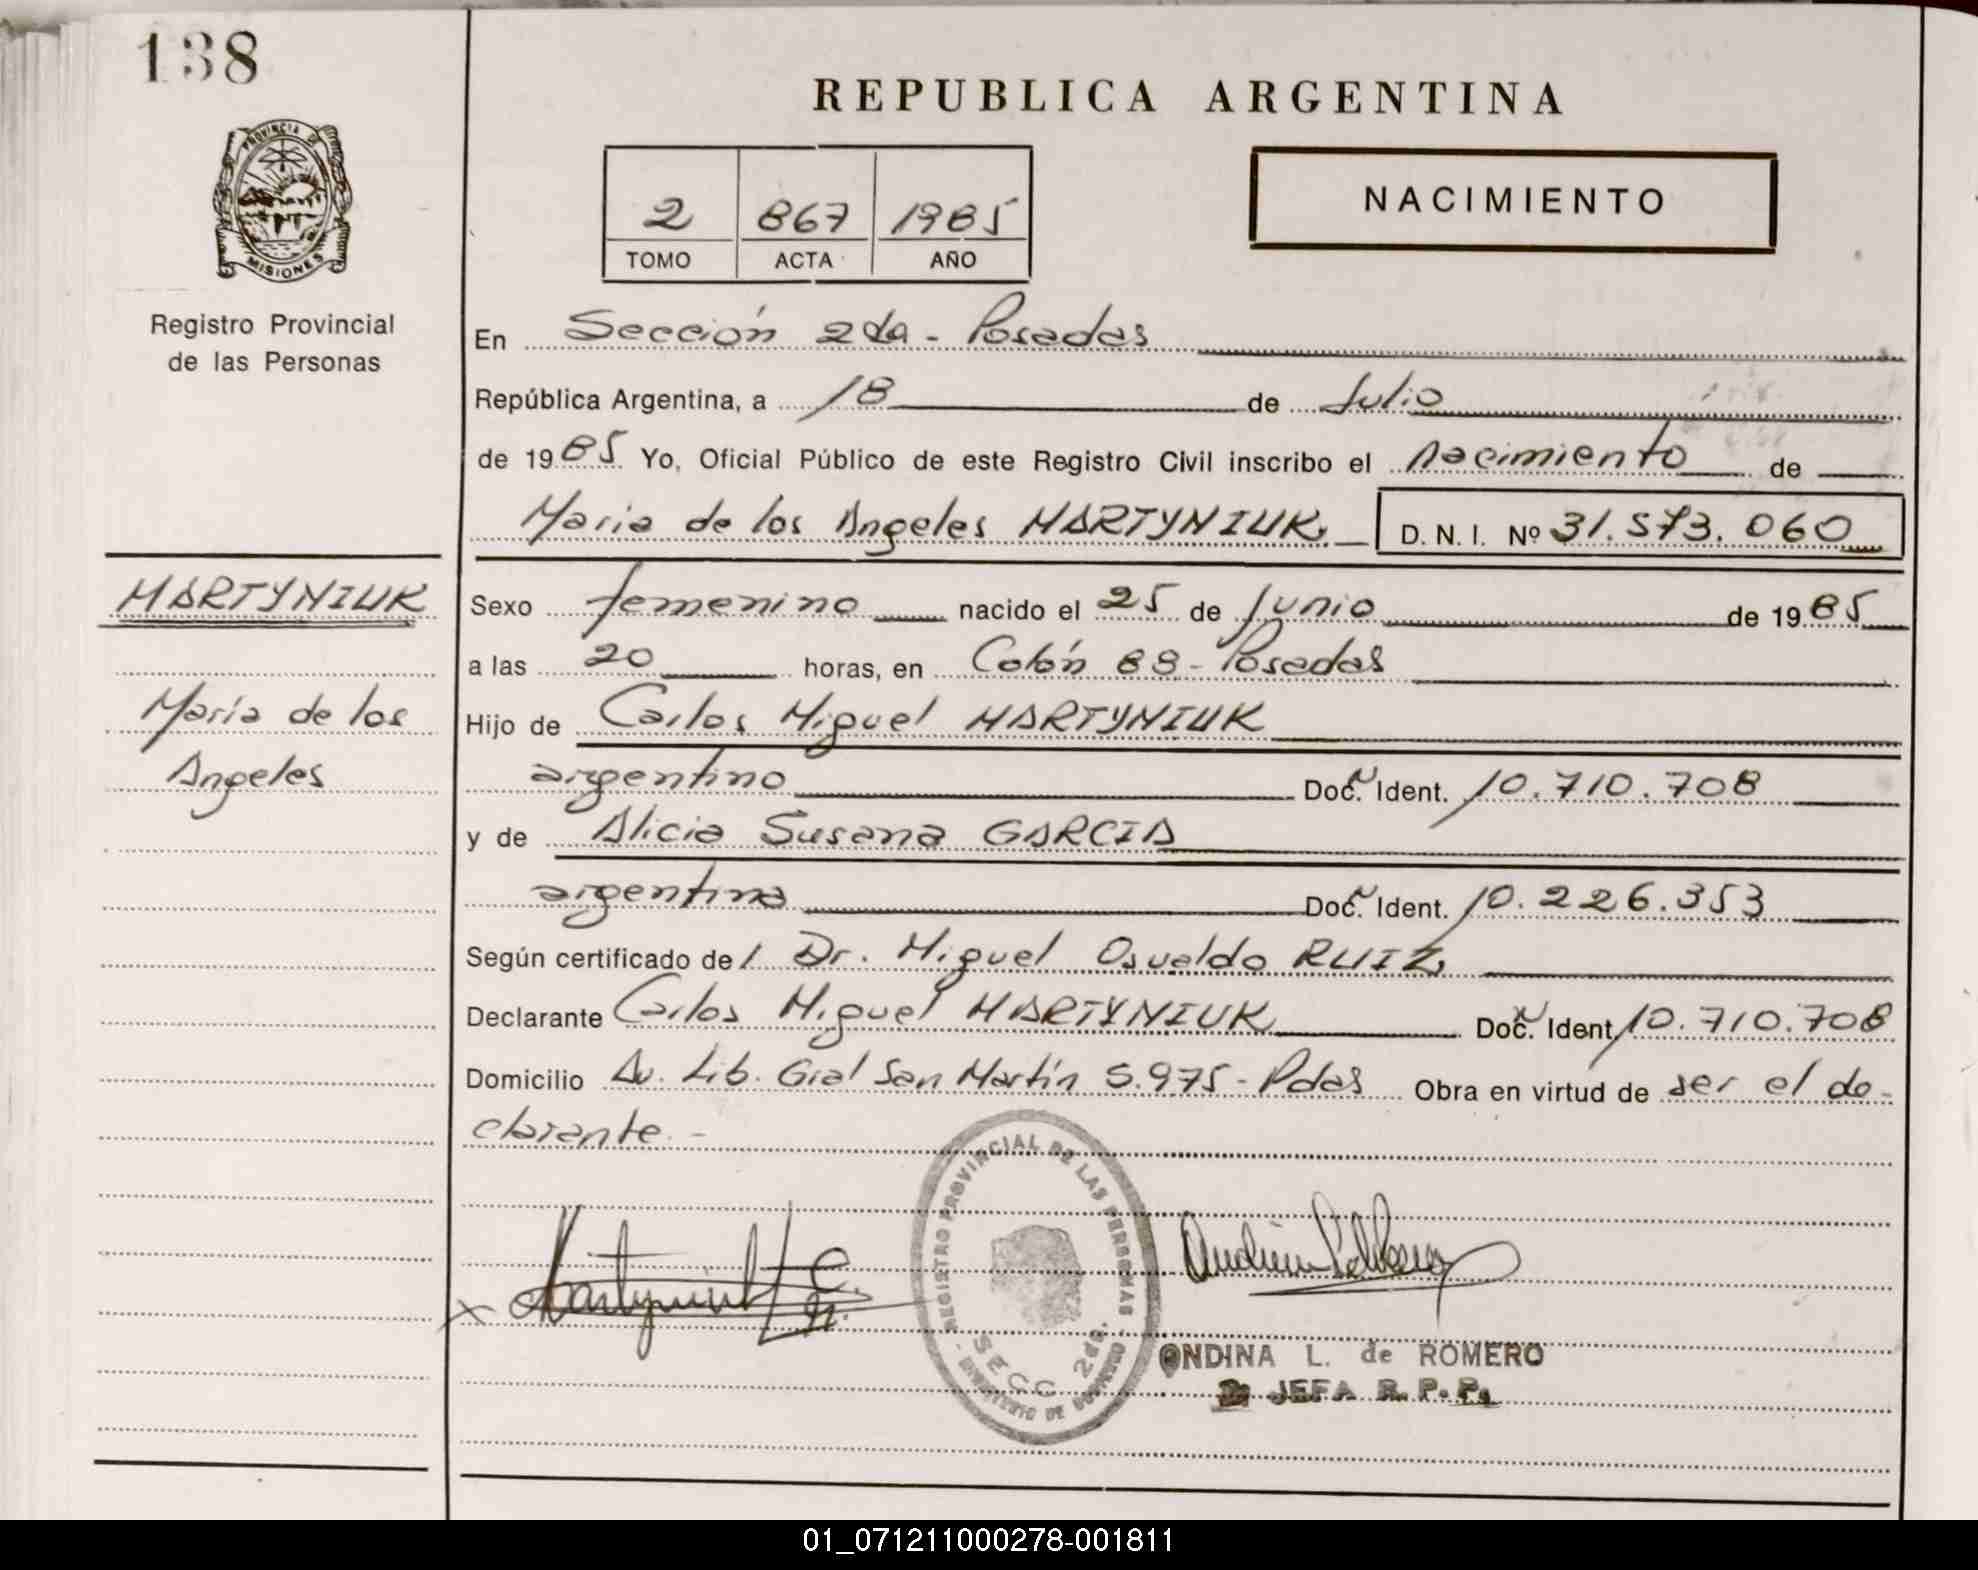 138
REPUBLICA ARGENTINA
PROVINCIA DE
MISIONES
Registro Provincial
de las Personas
2 867 1985
TOMO ACTA AÑO
NACIMIENTO
En Sección 2da - Posadas
República Argentina, a 18 de Julio
de 1985 Yo, Oficial Público de este Registro Civil inscribo el nacimiento de
Maria de los Angeles MARTYNIUK. D. N. I. Nº 31.573.060
MARTYNIUK
María de los
Angeles
Sexo femenino nacido el 25 de Junio de 1985
a las 20 horas, en Colón 89 - Posadas
Hijo de Carlos Miguel MARTYNIUK
argentino Doc. Ident. 10.710.708
y de Alicia Susana GARCIA
argentina Doc. Ident. 10.226.353
Según certificado del Dr. Miguel Osvaldo RUIZ
Declarante Carlos Miguel MARTYNIUK Doc. Ident. 10.710.708
Domicilio Av. Lib. Gral San Martín 5.975 - Pdas Obra en virtud de ser el de-
clarante. -
REGISTRO PROVINCIAL DE LAS PERSONAS
SECC 2da.
MINISTERIO DE GOBIERNO
ONDINA L. de ROMERO
JEFA R. P. P.
01_071211000278-001811